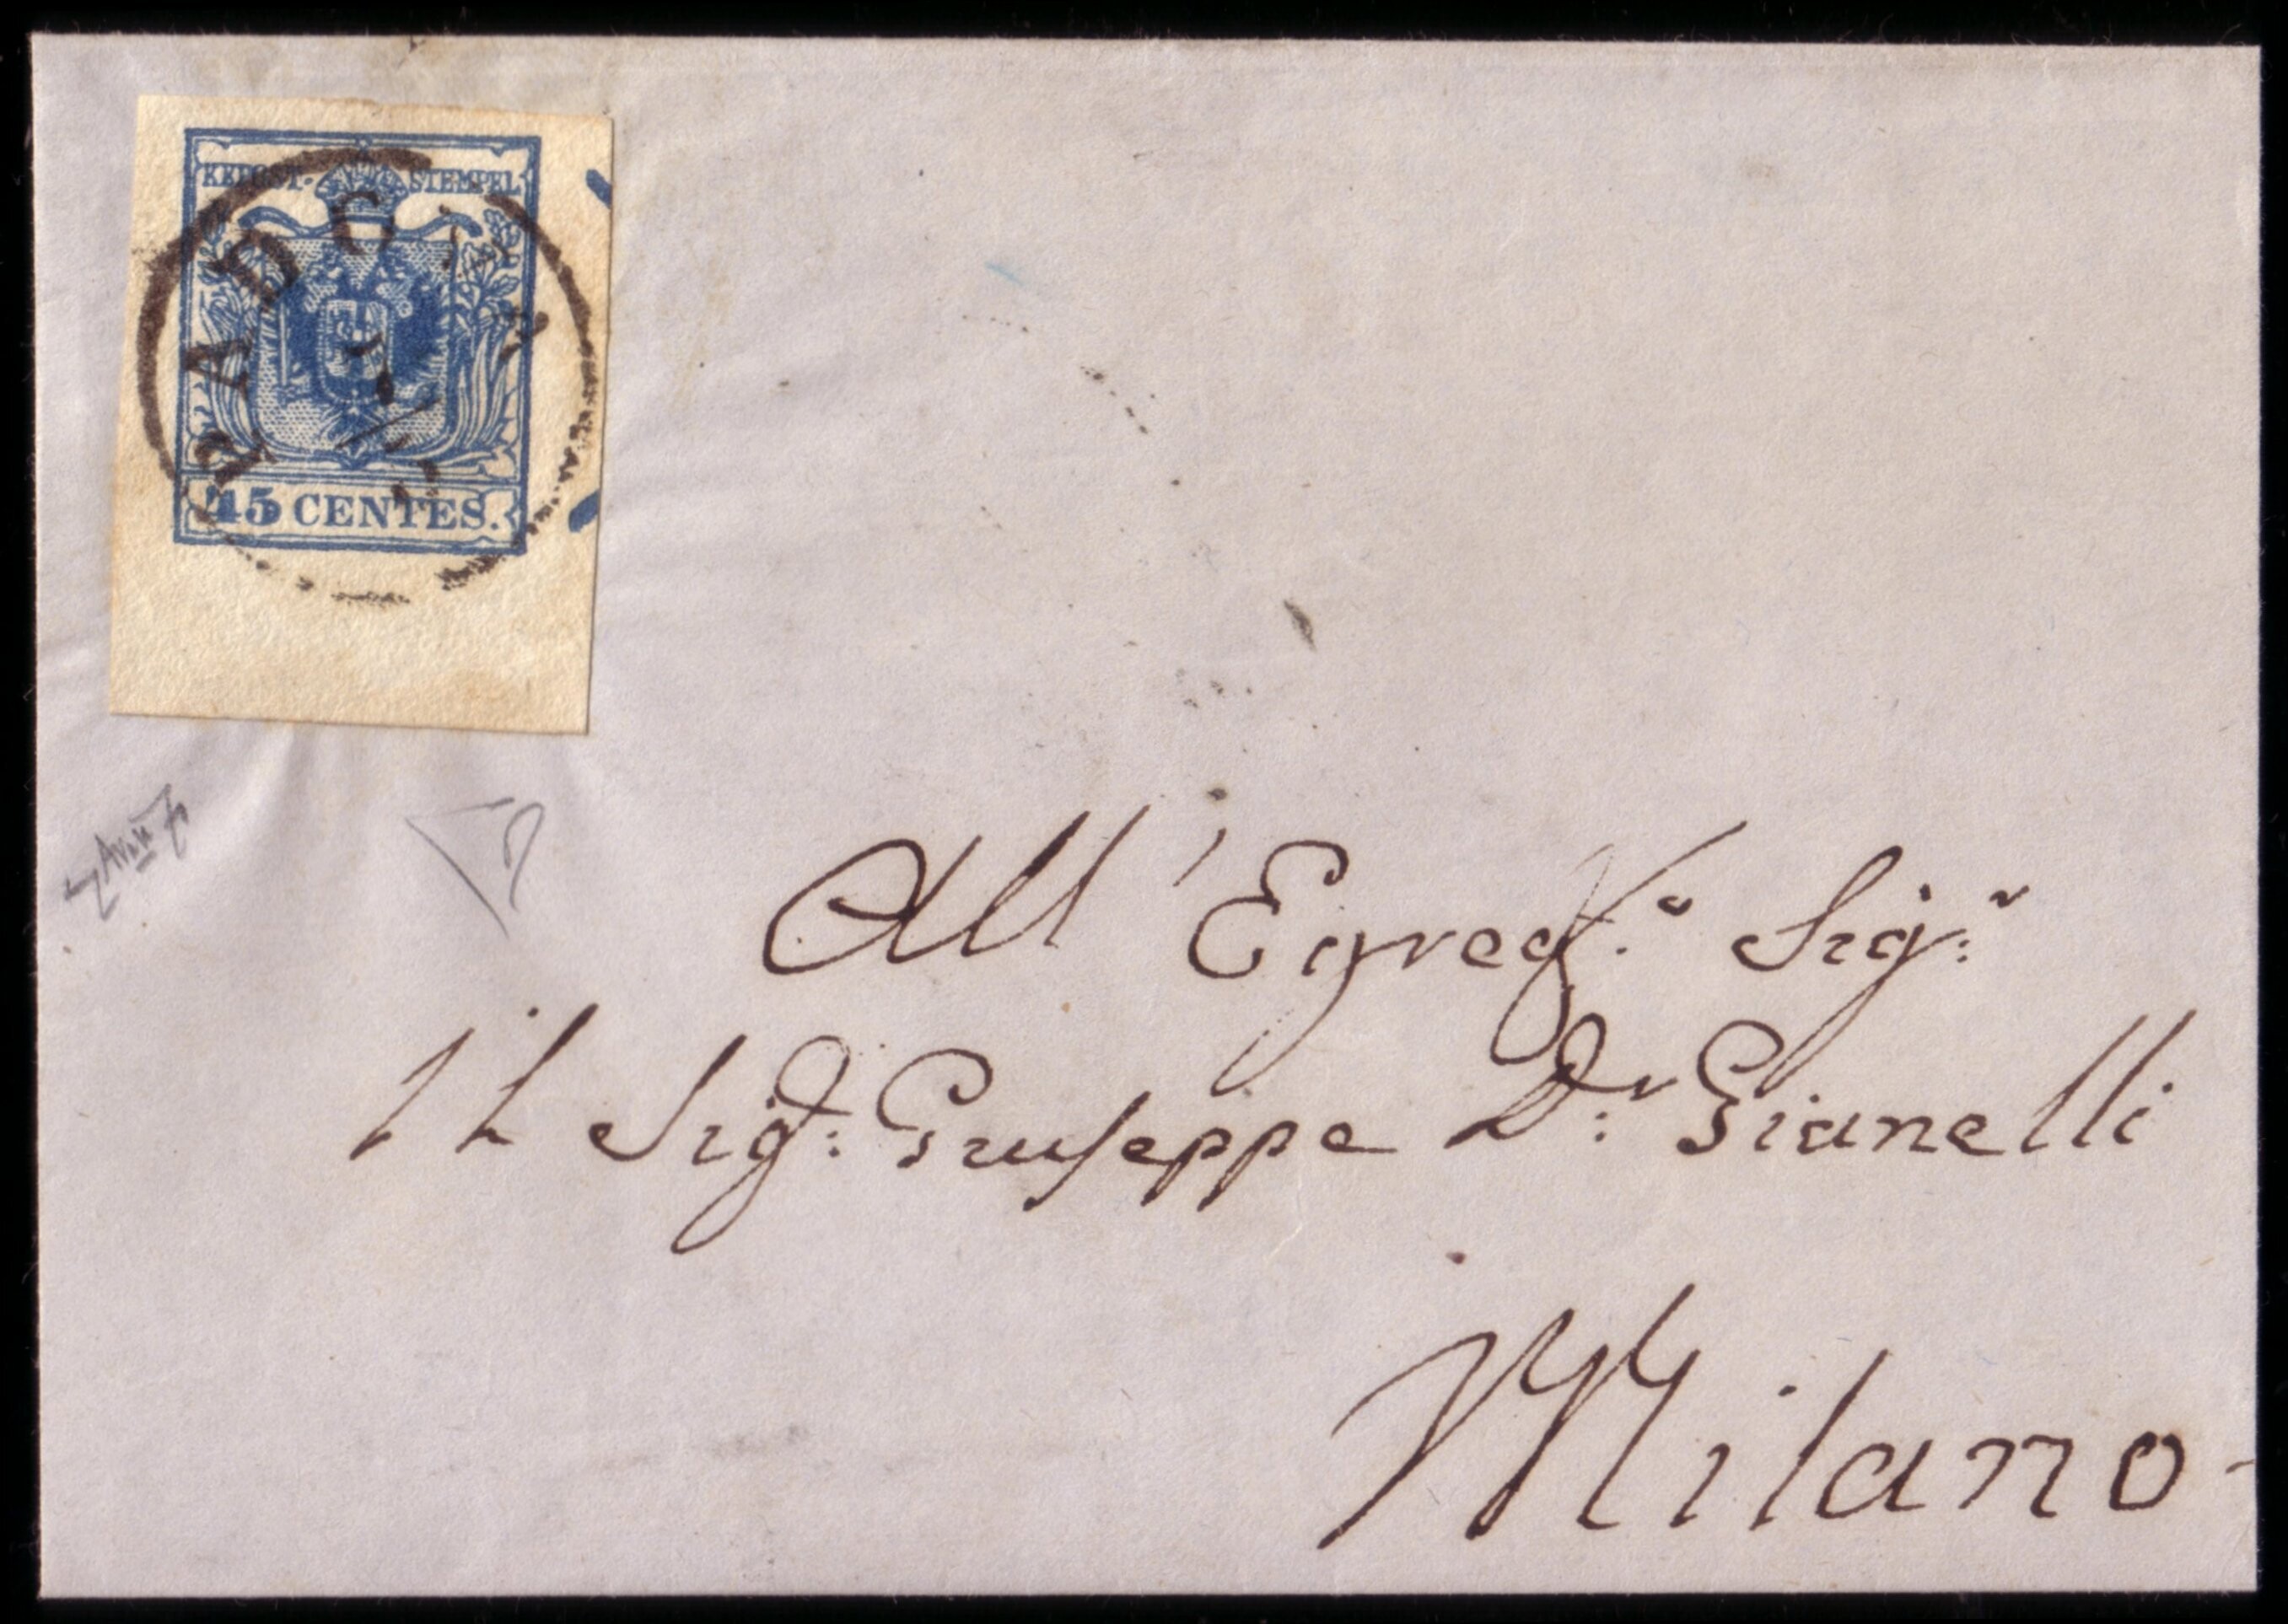 KKPOST-STEMPEL
PADOVA
45 CENTES.
All'Egreg.º Sig.r
il Sig.r Giuseppe D.r Gianelli
Milano